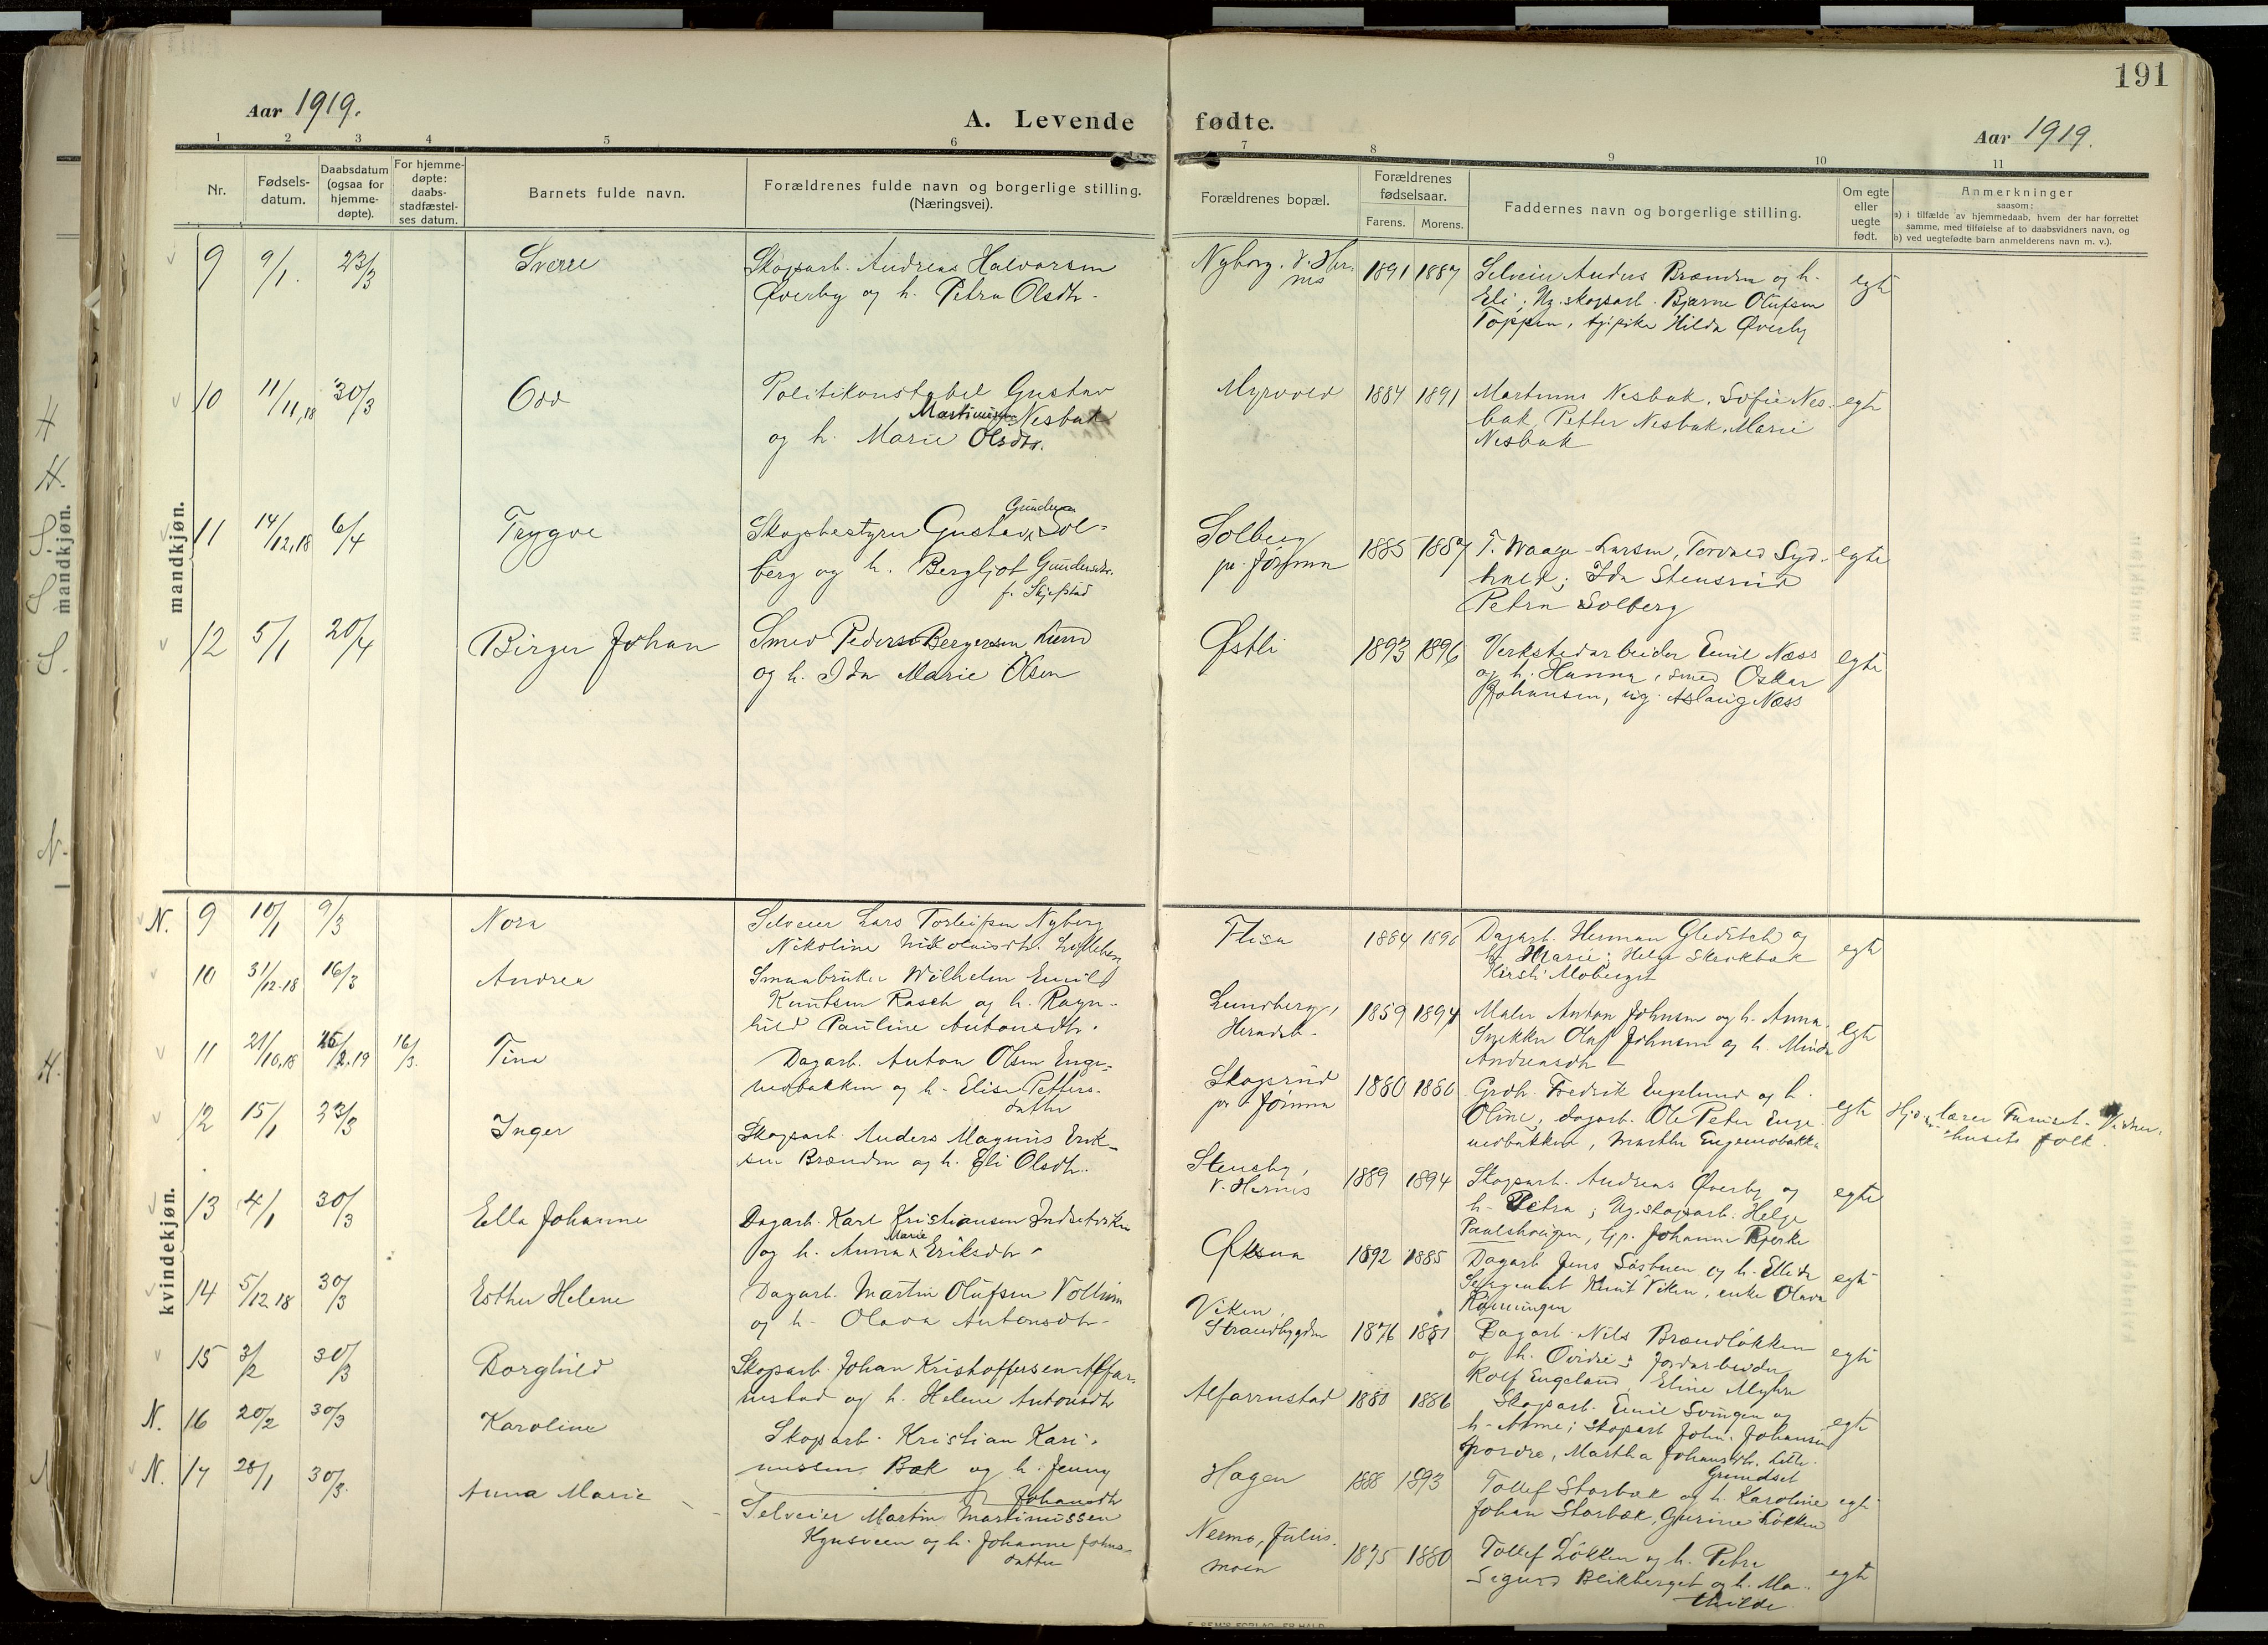 191
Aar 1919.
A. Levende fødte.
Aar 1919.
1 2 3 4 5 6 7 8 9 10 11
Nr.
Fødsels-
datum.
Daabsdatum
(ogsaa for
hjemme-
døpte).
For hjemme-
døpte:
daabs-
stadfæstel-
ses datum.
Barnets fulde navn.
Forældrenes fulde navn og borgerlige stilling.
(Næringsvei).
Forældrenes bopæl.
Forældrenes
fødselsaar.
Farens. Morens.
Faddernes navn og borgerlige stilling.
Om egte
eller
uegte
født.
Anmerkninger
saasom:
a) i tilfælde av hjemmedaab, hvem der har forrettet
samme, med tilføielse af to daabsvidners navn, og
b) ved uegtefødte barn anmelderens navn m. v.).
mandkjøn.
mandkjøn.
9 9/1. 23/3 Sverre
Skogsarb. Andreas Halvorsen
Øverby og h. Petra Olsdtr.
Nyborg, V. Her-
nes
1891 1887
Selveier Anders Brænden og h.
Eli; Ug. skogsarb. Bjarne Olufsen
Toppen, tj. pike Hilda Øverby
egte
10 11/11,18 30/3 Odd
Politikonstabel Gustav
Martinusen Nesbak
og h. Marie Olsdtr.
Myrvold
1884 1891
Martinus Nesbak, Sofie Nes-
bak, Petter Nesbak, Marie
Nesbak
egte
11 14/12,18 6/4 Trygve
Skogbestyrer Gustav Gundersen Sol-
berg og h. Bergljot Gundersdtr.
f. Skjefstad
Solberg
pr. Jømna
1885 1887
T. Waage-Larsen, Torvald Syd-
hald; Ida Stensrud
Petra Solberg
egte
12 5/1 20/4 Birger Johan
Smed Peder Bergersen Lund
og h. Ida Marie Olsen
Østli
1893 1896
Verkstedarbeider Emil Næss
og h. Hanna, smed Oskar
Johansen, ug. Aslaug Næss
egte
kvindekjøn.
N. 9 10/1 9/3 Nora
Selveier Lars Torleifsen Nyberg
Nikoline Nikolaisdtr.
Flisa
1884 1890
Dagarb. Herman Gleditsch og
h. Marie; Helga Skrokbæk
Kirsti Moberget
egte
10 31/12-18 16/3 Andrea
Smaabruker Wilhelm Emil
Knutsen Rasch og h. Ragn-
hild Pauline Antonsdtr.
Lundberg,
Heradsb.
1859 1894
Maler Anton Johnsen og h. Anna.
Snekker Olaf Johnsen og h. Minda
Andreasdtr
egte
11 21/10,18 /2.19 16/3. Tina
Dagarb. Anton Olsen Enge-
nesbakken og h. Elise Petters-
datter
Skogsrud
pr. Jømna
1880 1886
Grdb. Fredrik Engelund og h.
Oline, dagarb. Ole Peter Enge-
nesbakken, Martha Engenesbakken
egte
Hj.d. lærer Furuset. Vidner:
husets folk.
12 15/1 23/3 Inger
Skogsarb. Anders Magnus Erik-
sen Brænden og h. Eli Olsdtr.
Stensby,
V. Hernes
1889 1894
Skogsarb. Andreas Øverby og
h. Petra; Ug. skogsarb. Helge
Paulshaugen, tjp. Johanne Bjerke
egte
13 4/1 30/3 Ella Johanne
Dagarb. Karl Kristiansen Indsetviken
og h. Anna Marie Eriksdtr.
Øksna
1892 1885
Dagarb Jens Sosbuen og h. Ellida
Sersjeant Knut Viken, enke Olava
Rønningen
egte
14 5/12 18 30/3 Esther Helene
Dagarb. Martin Olufsen Vollum
og h. Olava Antonsdtr.
Viken,
Strandbygden
1876 1881
Dagarb. Nils Brændløkken
og h. Ovidie; Jordarbeider
Rolf Engeland, Eline Myhre
egte
15 3/2 30/3 Borghild
Skogsarb. Johan Kristoffersen Alfar-
nestad og h. Helene Antonsdtr
Alfarrnstad
1880 1886
Skogsarb. Emil Svingen og
h. Anne; skogsarb John. Johansen
Spordre, Martha Johansdtr. Lille-
Grundset
egte
N. 16 20/2 30/3 Karoline
Skogsarb. Kristian Kari-
nussen Bæk og h. Jenny
Johansdtr
Hagen
1888 1893
Tollef Storbæk og h. Karoline
Johan Storbæk, Gurine Løkken
egte
N. 17 28/1 30/3. Anna Marie
Selveier Martin Martinussen
Kynsveen og h. Johanne Johns-
datter
Nermo, Julus-
moen
1875 1880
Tollef Løkken og h. Petra
Sigurd Blikberget og h. Ma-
thilde
egte